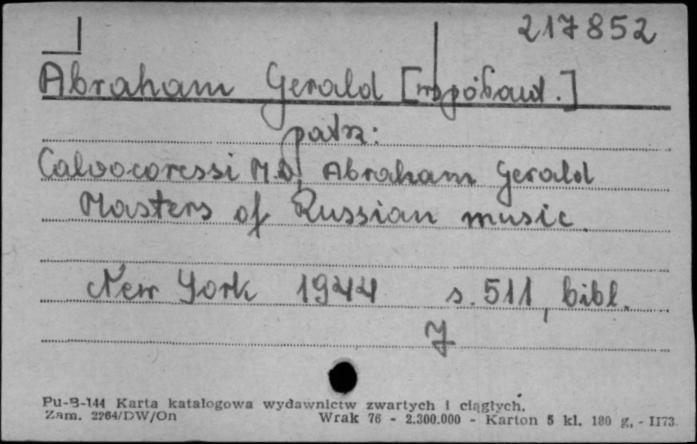 217852
Abraham Gerald [współaut.]
patrz:
Calvocoressi M.D., Abraham Gerald
Masters of Russian music.
New York 1944 s. 511, bibl.
J
Pu-B-144 Karta katalogowa wydawnictw zwartych i ciągłych.
Zam. 2264/DW/On Wrak 76 - 2.300.000 - Karton 5 kl. 180 g. - II73